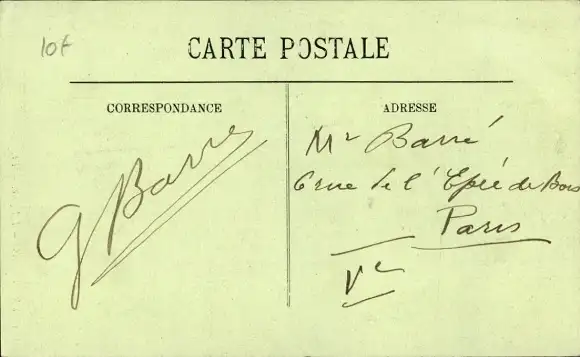 10f
CARTE POSTALE
CORRESPONDANCE
ADRESSE
G Barré
Mr Barré
6 rue de l'Epée de Bois
Paris
Ve